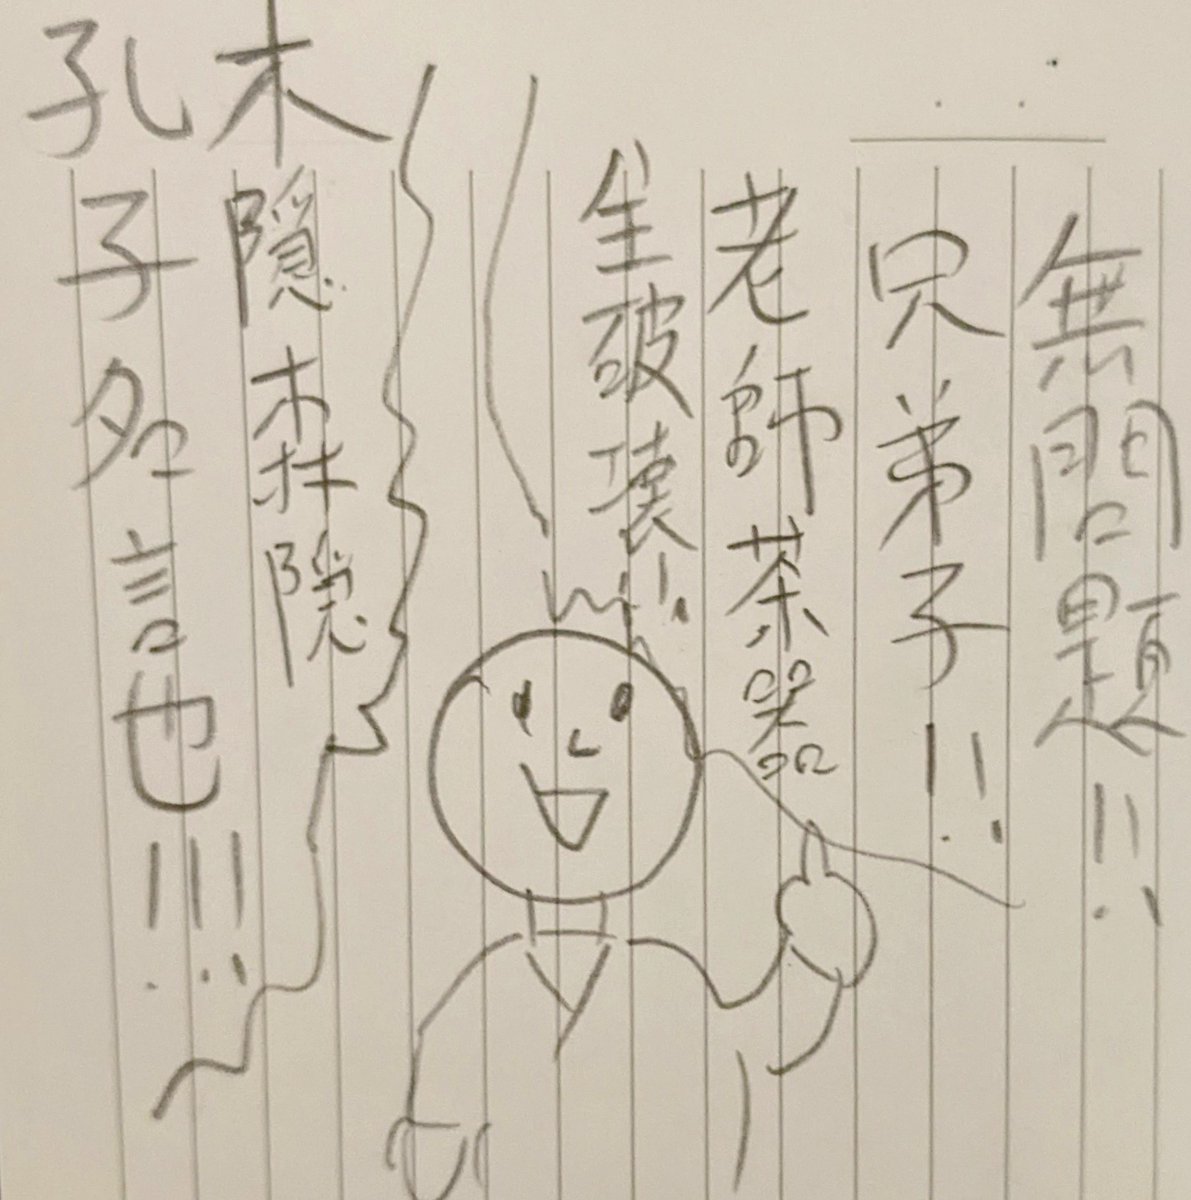 無問題!!
只弟子!!
老師茶器
生破壊!!
木隠森隠
孔子名言也!!!